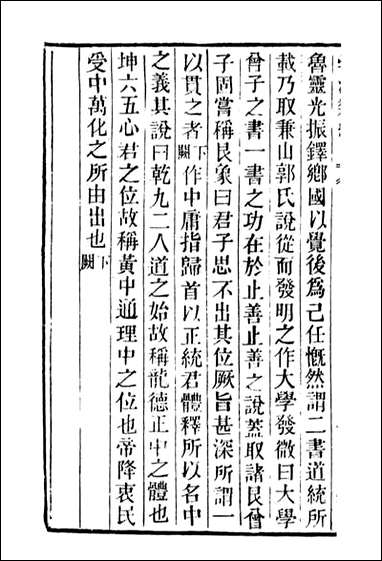 魯靈光振鐸鄉國以覺後爲己任慨然謂二書道統所
載乃取兼山郭氏說從而發明之作大學發微曰大學
曾子之書一書之功在於止善止善之說蓋取諸艮曾
子固嘗稱艮象曰君子思不出其位厥旨甚深所謂一
以貫之者下闕作中庸指歸首以正統君體釋所以名中
之義其說曰乾九二人道之始故稱龍德正中之體也
坤六五心君之位故稱黃中通理中之位也帝降衷民
受中萬化之所由出也下闕